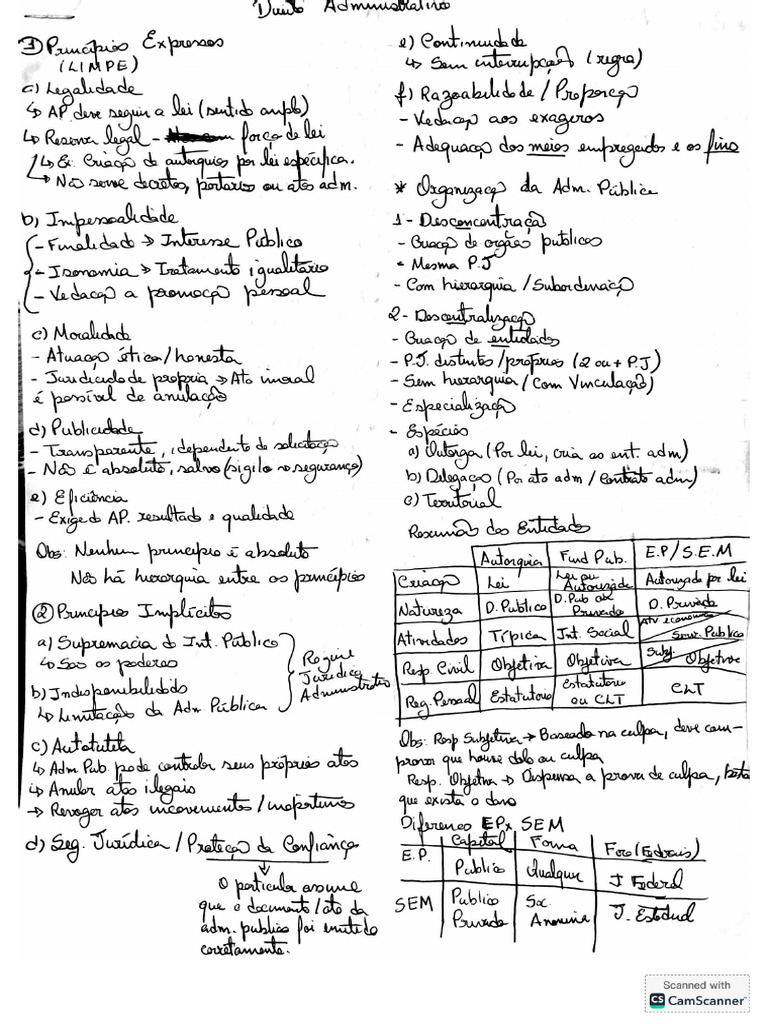 Direito Administrativo
① Princípios Expressos
(LIMPE)
a) Legalidade
↳ AP deve seguir a lei (sentido amplo)
↳ Reserva legal - força de lei
↳ Ex: Criação de autarquias por lei específica.
↳ Não serve decretos, portarias ou atos adm.
b) Impessoalidade
- Finalidade → Interesse Público
- Isonomia → Tratamento igualitário
- Vedação a promoção pessoal
c) Moralidade
- Atuação ética/honesta
- Juridicidade própria → Ato imoral
é passível de anulação
d) Publicidade
- Transparente, idependente de solicitação
- Não é absoluto, salvo (sigilo vs segurança)
e) Eficiência
- Exige do AP. resultado e qualidade
Obs: Nenhum princípio é absoluto
Não há hierarquia entre os princípios
② Princípios Implícitos
a) Supremacia do Int. Público
↳ São os poderes
b) Indisponibilidade
↳ Limitação da Adm Pública
Regime
Jurídico
Administrativo
c) Autotutela
↳ Adm Pub. pode controlar seus próprios atos
↳ Anular atos ilegais
→ Revogar atos incovenientes/inoportunos
d) Seg. Jurídica / Proteção da Confiança
O particular assume
que o documento/ato da
adm. publica foi emitido
corretamente.
e) Continuidade
↳ Sem interrupção (regra)
f) Razoabilidade / Proporção
- Vedação aos exageros
- Adequação dos meios empregados e os fins
* Organização da Adm. Pública
1 - Desconcentração
- Criação de orgãos publicos
- Mesma P.J
- Com hierarquia / Subordinação
2 - Descentralização
- Criação de entidades
- P.J. distintas/próprias (2 ou + P.J)
- Sem hierarquia / Com Vinculação)
- Especialização
- Espécies
a) Outorga (Por lei, cria as ent. adm)
b) Delegação (Por ato adm / Contrato adm)
c) Territorial
Resumão das Entidades
Autarquia Fund Pub. E.P / S.E.M
Criação Lei Lei ou Autorizada Autorizada por lei
Natureza D. Publico D. Pub ou Privado D. Privado
Atividades Típica Int. Social Atv economica Serv. Publico
Resp. Civil Objetiva Objetiva Subj. Objetiva
Reg. Pessoal Estatutario Estatutário ou CLT CLT
Obs: Resp Subjetiva → Baseado na culpa, deve com-
provar que houve dolo ou culpa
Resp. Objetiva → Dispensa a prova de culpa, basta
que exista o dano
Diferença EP x SEM
Capital Forma Foro (Federais)
E.P. Publico Qualquer J Federal
SEM Publico Privado Soc. Anonima J. Estadual
Scanned with
CS CamScanner